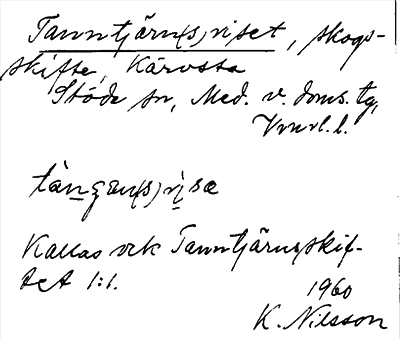 Tanntjärn(s)riset, skogs-
skifte, Kärvsta
Stöde sn, Med. v. doms. tg,
Vnrl. l.
tàngæn(s)ri̱sæ
Kallas ock Tanntjärnsskif-
tet 1:1.
1960
K. Nilsson